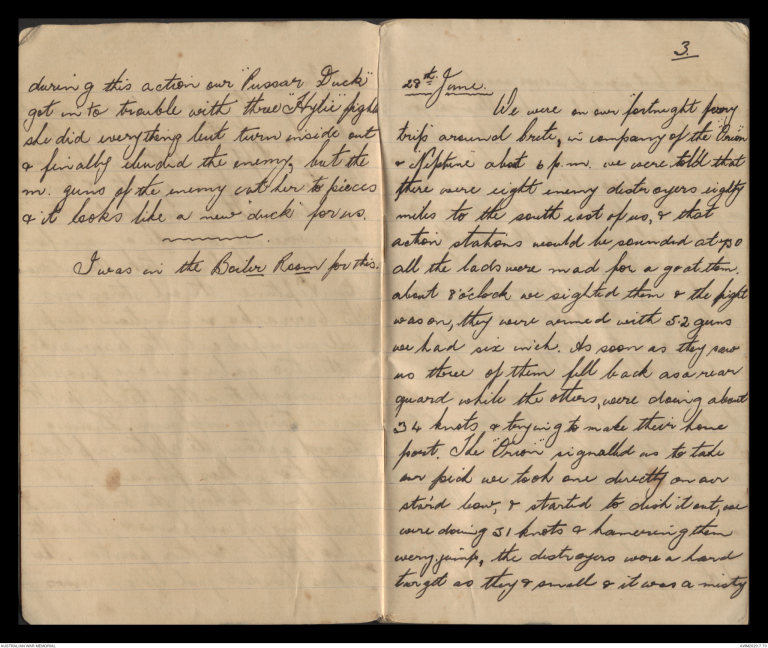 during this action our "Pussar Duck"
got into trouble with three "Hylie" fight
she did everything but turn inside out
& finally eluded the enemy, but the
m. guns of the enemy cut her to pieces
& it looks like a new "duck" for us.
I was in the Boiler Room for this.
3.
28th June.
We were on our fortnight
trip around Crete, in company of the "Orion"
& "Neptune" about 6 p.m. we were told that
there were eight enemy destroyers eighty
miles to the south east of us, & that
action stations would be sounded at 730
all the lads were mad for a go at them.
about 8 o'clock we sighted them & the fight
was on, they were armed with 5.2 guns
we had six inch. As soon as they saw
us three of them fell back as a rear
guard while the others, were doing about
34 knots, & trying to make their home
port. The "Orion" signalled us to take
our pick we took one directly on our
star'd bow, & started to dish it out, we
were doing 31 knots & hamering them
the destroyers were a hard
target as they & small & it was a misty
AUSTRALIAN WAR MEMORIAL